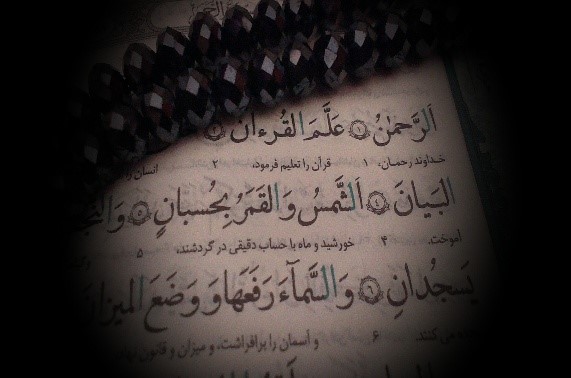 اَلرَّحمٰنُ ۱ عَلَّمَ القُرءانَ
خداوند رحمان، ۱ قرآن را تعلیم فرمود، ۲ انسان را
البَیانَ ۴ اَلشَّمسُ وَ القَمَرُ بِحُسبانٍ ۵ وَ النَّجـ
آموخت. ۴ خورشید و ماه با حساب دقیقی در گردشند، ۵
یَسجُدانِ ۶ وَ السَّمآءَ رَفَعَها وَ وَضَعَ المیزانَ
می‌کنند ۶ و آسمان را برافراشت، و میزان و قانون